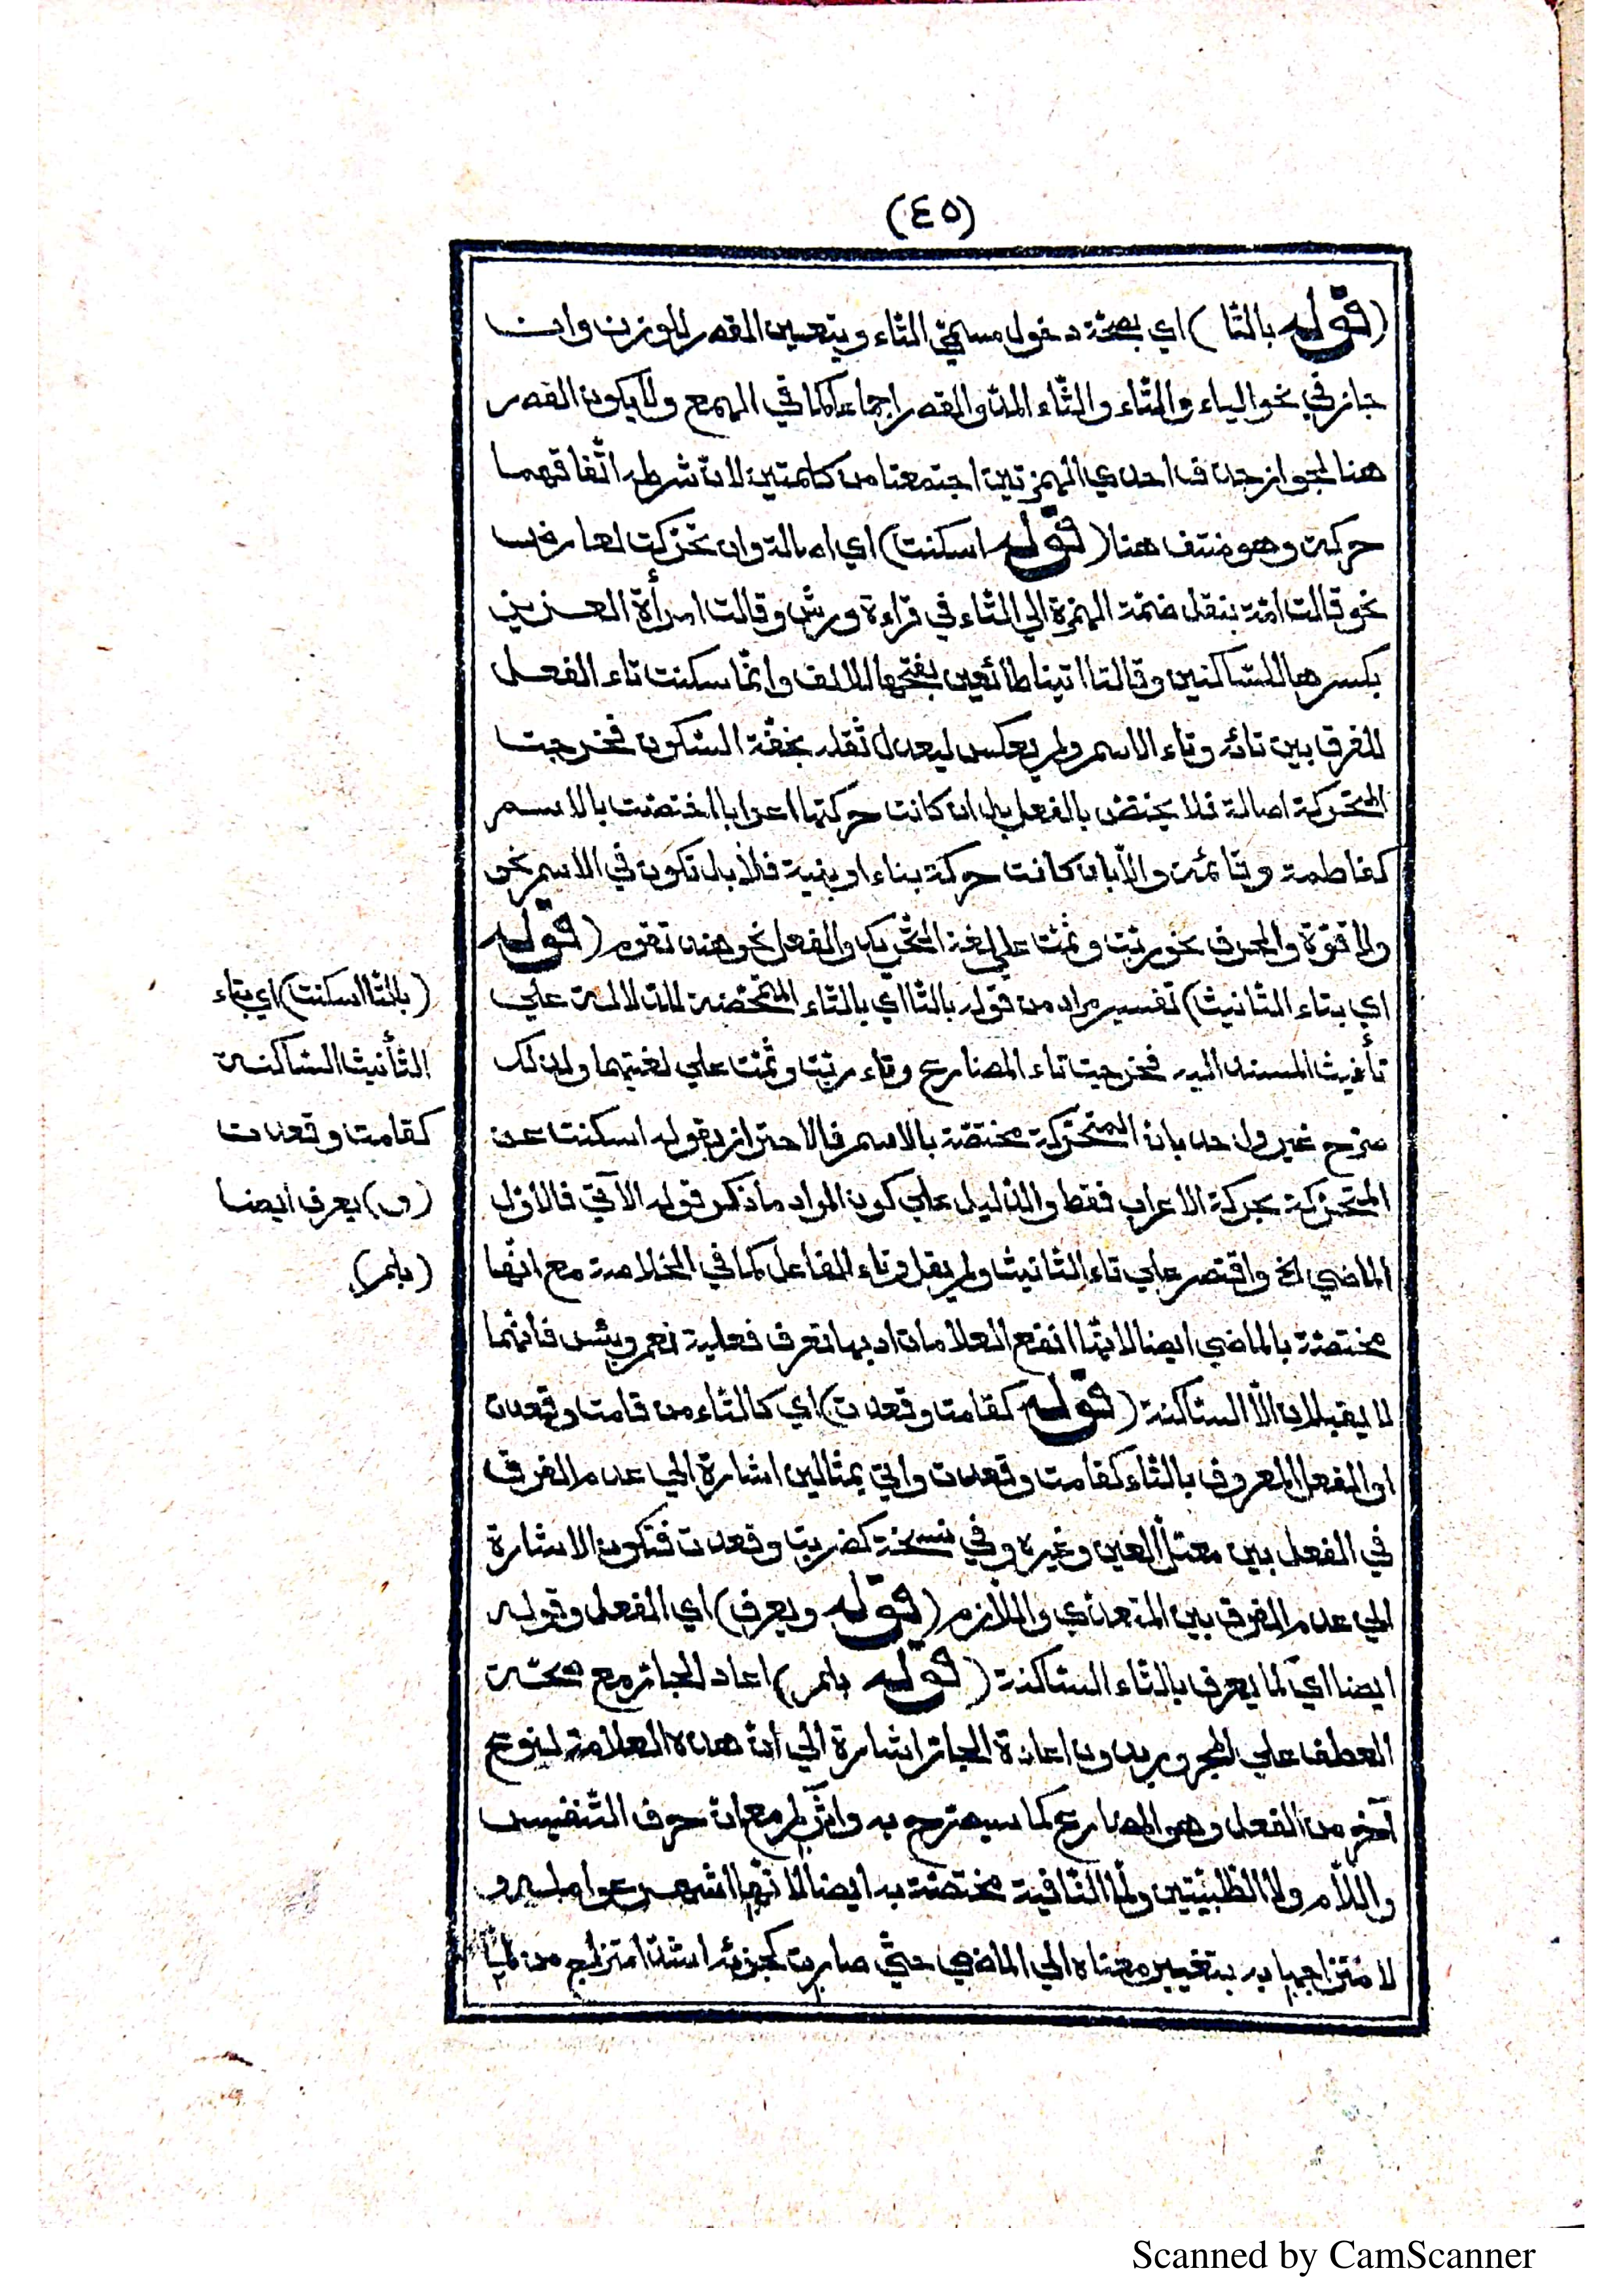 (٤٥)
(قوله بالتا) اي بصحّة دخول مسمّي التاء ويتعين القصر للوزن وان
جاز في نحو الياء والتاء والثاء المد والقصر اجماعا كما في الهمع ولا يكون القصر
هنا لجواز حذف احدي الهمزتين اجتمعتا من كلمتين لانّ شرطه اتّفاقهما
حركة وهو منتف هنا (قوله اسكنت) اي اصالة وان تحرّكت لعارض
نحو قالت امّة بنقل ضمّة الهمزة الي التاء في قراءة ورش وقالت امرأة العزيز
بكسرها للسّاكنين وقالتا اتينا طائعين بفتحها للالف وانّما سكنت تاء الفعل
للفرق بين تائه وتاء الاسم ولم يعكس ليعدل ثقله بخفّة السّكون فخرجت
المتحركة اصالة فلا يختصّ بالفعل بل ان كانت حركتها اعرابا اختصّت بالاسم
كفاطمة وقائمة والّا بان كانت حركة بناء او بنية فلا بل تكون في الاسم نحو
ولا قوّة والحرف نحو ربّت وثمّت علي لغة التّحريك والفعل نحو هند تقوم (قوله
اي بتاء التانيث) تفسير مراد من قوله بالتا اي بالتاء المختصّة للدلالة علي
تأنيث المسند اليه فخرجت تاء المضارع وتاء ربّت وثمّت علي لغتيهما ولذلك
صرّح غير واحد بانّ المتحرّكة مختصّة بالاسم فالاحتراز بقوله اسكنت عن
المتحرّكة بحركة الاعراب فقط والدّليل علي كون المراد ما ذكر قوله الآتي فالاوّل
الماضي الخ واقتصر علي تاء التّانيث ولم يقل وتاء الفاعل كما في الخلاصة مع انّها
مختصّة بالماضي ايضا لانّها انفع العلامات اذ بها تعرف فعلية نعم وبئس فانّهما
لا يقبلان الّا السّاكنة (قوله كقامت وقعدت) اي كالتاء من قامت وقعدت
او الفعل المعروف بالتّاء كقامت وقعدت واتي بمثالين اشارة الي عدم الفرق
في الفعل بين معتلّ العين وغيره وفي نسخة كضربت وقعدت فتكون الاشارة
الي عدم الفرق بين المتعدّي واللّازم (قوله ويعرف) اي الفعل وقوله
ايضا اي كما يعرف بالتّاء السّاكنة (قوله بلم) اعاد الجارّ مع صحّة
العطف علي المجرور بدون اعادة الجارّ اشارة الي انّ هذه العلامة لنوع
آخر من الفعل وهو المضارع كما سيصرّح به وآثر لم مع انّ حرف التّنفيس
واللّام ولا الطّلبيّتين ولا النّافية مختصّة به ايضا لانّها اشهر عوامله و
لامتزاجها به بتغيير معناه الي الماضي حتّي صارت كجزئه اشدّ امتزاج من لمّا
(بالتا اسكنت) اي بتاء
التّأنيث السّاكنة
كقامت وقعدت
(و) يعرف ايضا
(بلم)
Scanned by CamScanner